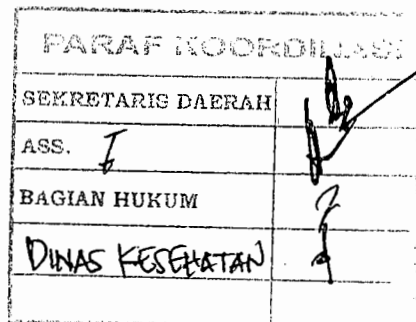 PARAF KOORDINASI
SEKRETARIS DAERAH
ASS. I
BAGIAN HUKUM
DINAS KESEHATAN